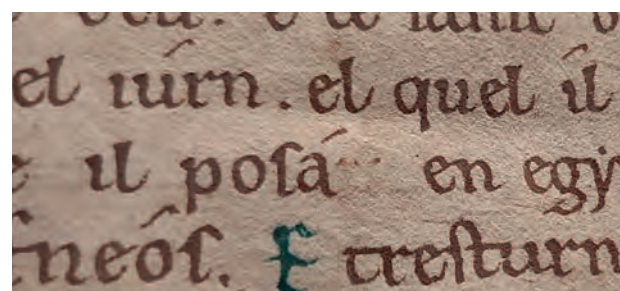 el iúrn. el quel íl
il poſá en egy
neóſ. E treſturn